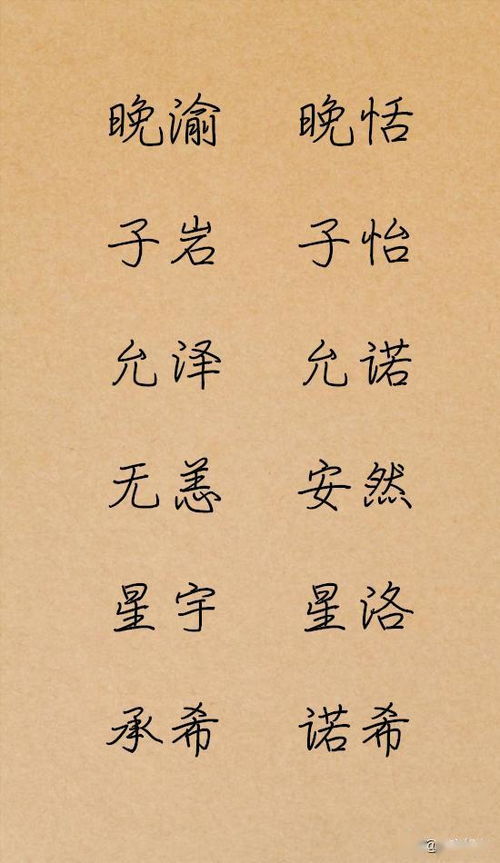 晚渝 晚恬
子岩 子怡
允泽 允诺
无恙 安然
星宇 星洛
承希 诺希
@